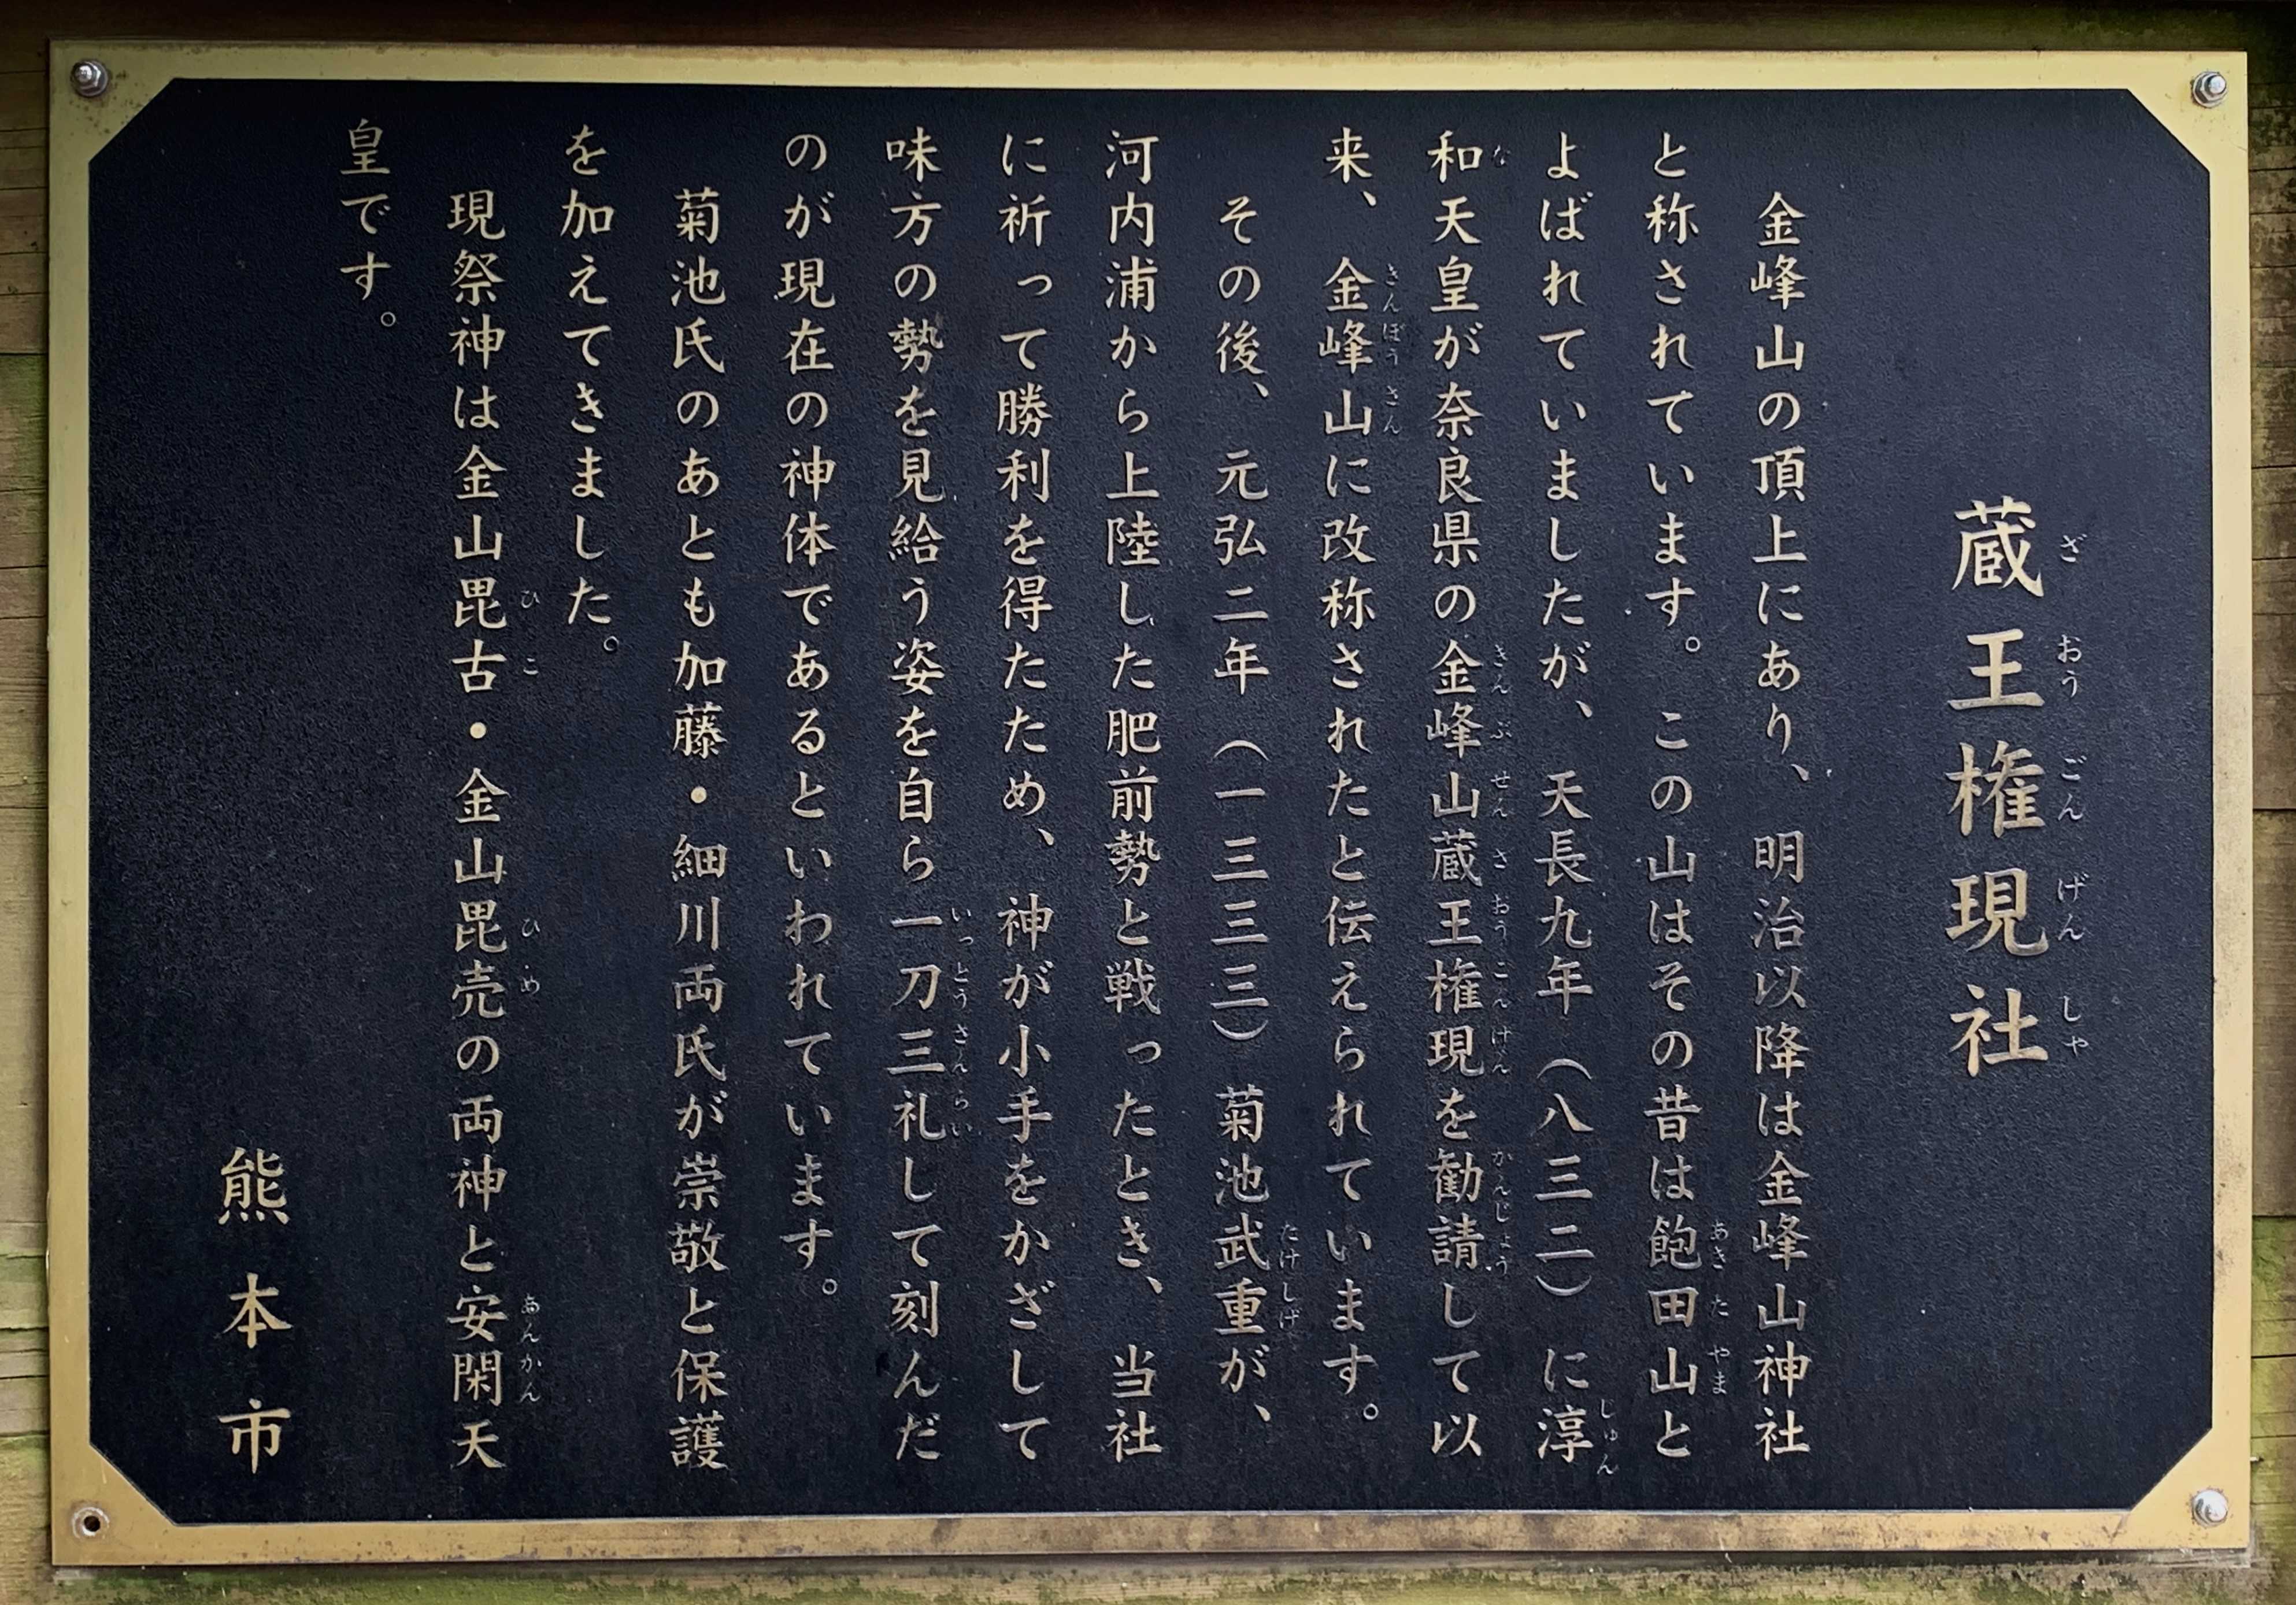 蔵王権現社
金峰山の頂上にあり、明治以降は金峰山神社
と称されています。この山はその昔は飽田山と
よばれていましたが、天長九年（八三二）に淳
和天皇が奈良県の金峰山蔵王権現を勧請して以
来、金峰山に改称されたと伝えられています。
その後、元弘二年（一三三三）菊池武重が、
河内浦から上陸した肥前勢と戦ったとき、当社
に祈って勝利を得たため、神が小手をかざして
味方の勢を見給う姿を自ら一刀三礼して刻んだ
のが現在の神体であるといわれています。
菊池氏のあとも加藤・細川両氏が崇敬と保護
を加えてきました。
現祭神は金山毘古・金山毘売の両神と安閑天
皇です。
熊本市